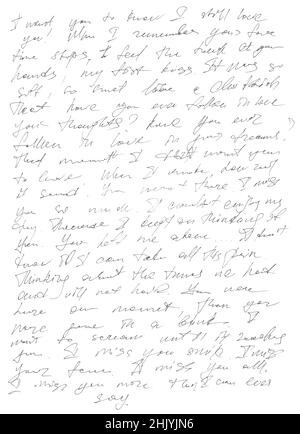 I want you to know I still love
you! When I remember your face
time stops, I feel the touch of your
hands, my first kiss. It was so
soft, so sweet like a
that have you ever fallen in love
your thoughts? have you ever
fallen in love in your dreams.
that moment I want you
to come. When I awake, how sad
it seemed. You weren't there I miss
you so much. I couldn't enjoy my
day because I kept on thinking of
you. You left me alone... I don't
know if I can take all this pain
thinking about the times we had
and will not have. You were
here one moment, then you
were gone in a I
want to scream until it
you. I miss you smile. I miss
your face. I miss you all.
I miss you more than I can ever
say.
alamy
Image ID: 2HJYJN6
www.alamy.com